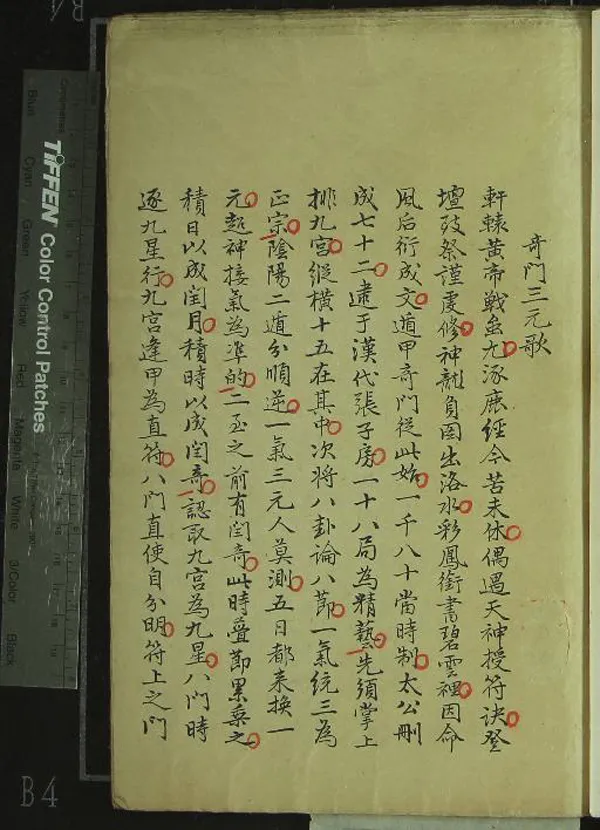 奇門三元歌
軒轅黃帝戰蚩尤涿鹿經今苦未休偶遇天神授符訣登
壇致祭謹虔修神龍負圖出洛水彩鳳銜書碧雲裡因命
風后衍成文遁甲奇門從此始一千八十當時制太公刪
成七十二逮于漢代張子房一十八局為精藝先須掌上
排九宮縱橫十五在其中次將八卦論八節一氣統三為
正宗陰陽二遁分順逆一氣三元人莫測五日都来換一
元超神接氣為準的二至之前有閏奇此時疊節累乗之
積日以成閏月積時以成閏奇認取九宮為九星八門時
逐九星行九宮逢甲為直符八門直使自分明符上之門
TIFFEN Color Control Patches
Blue
Cyan
Green
Yellow
Red
Magenta
White
3/Color
Black
B4